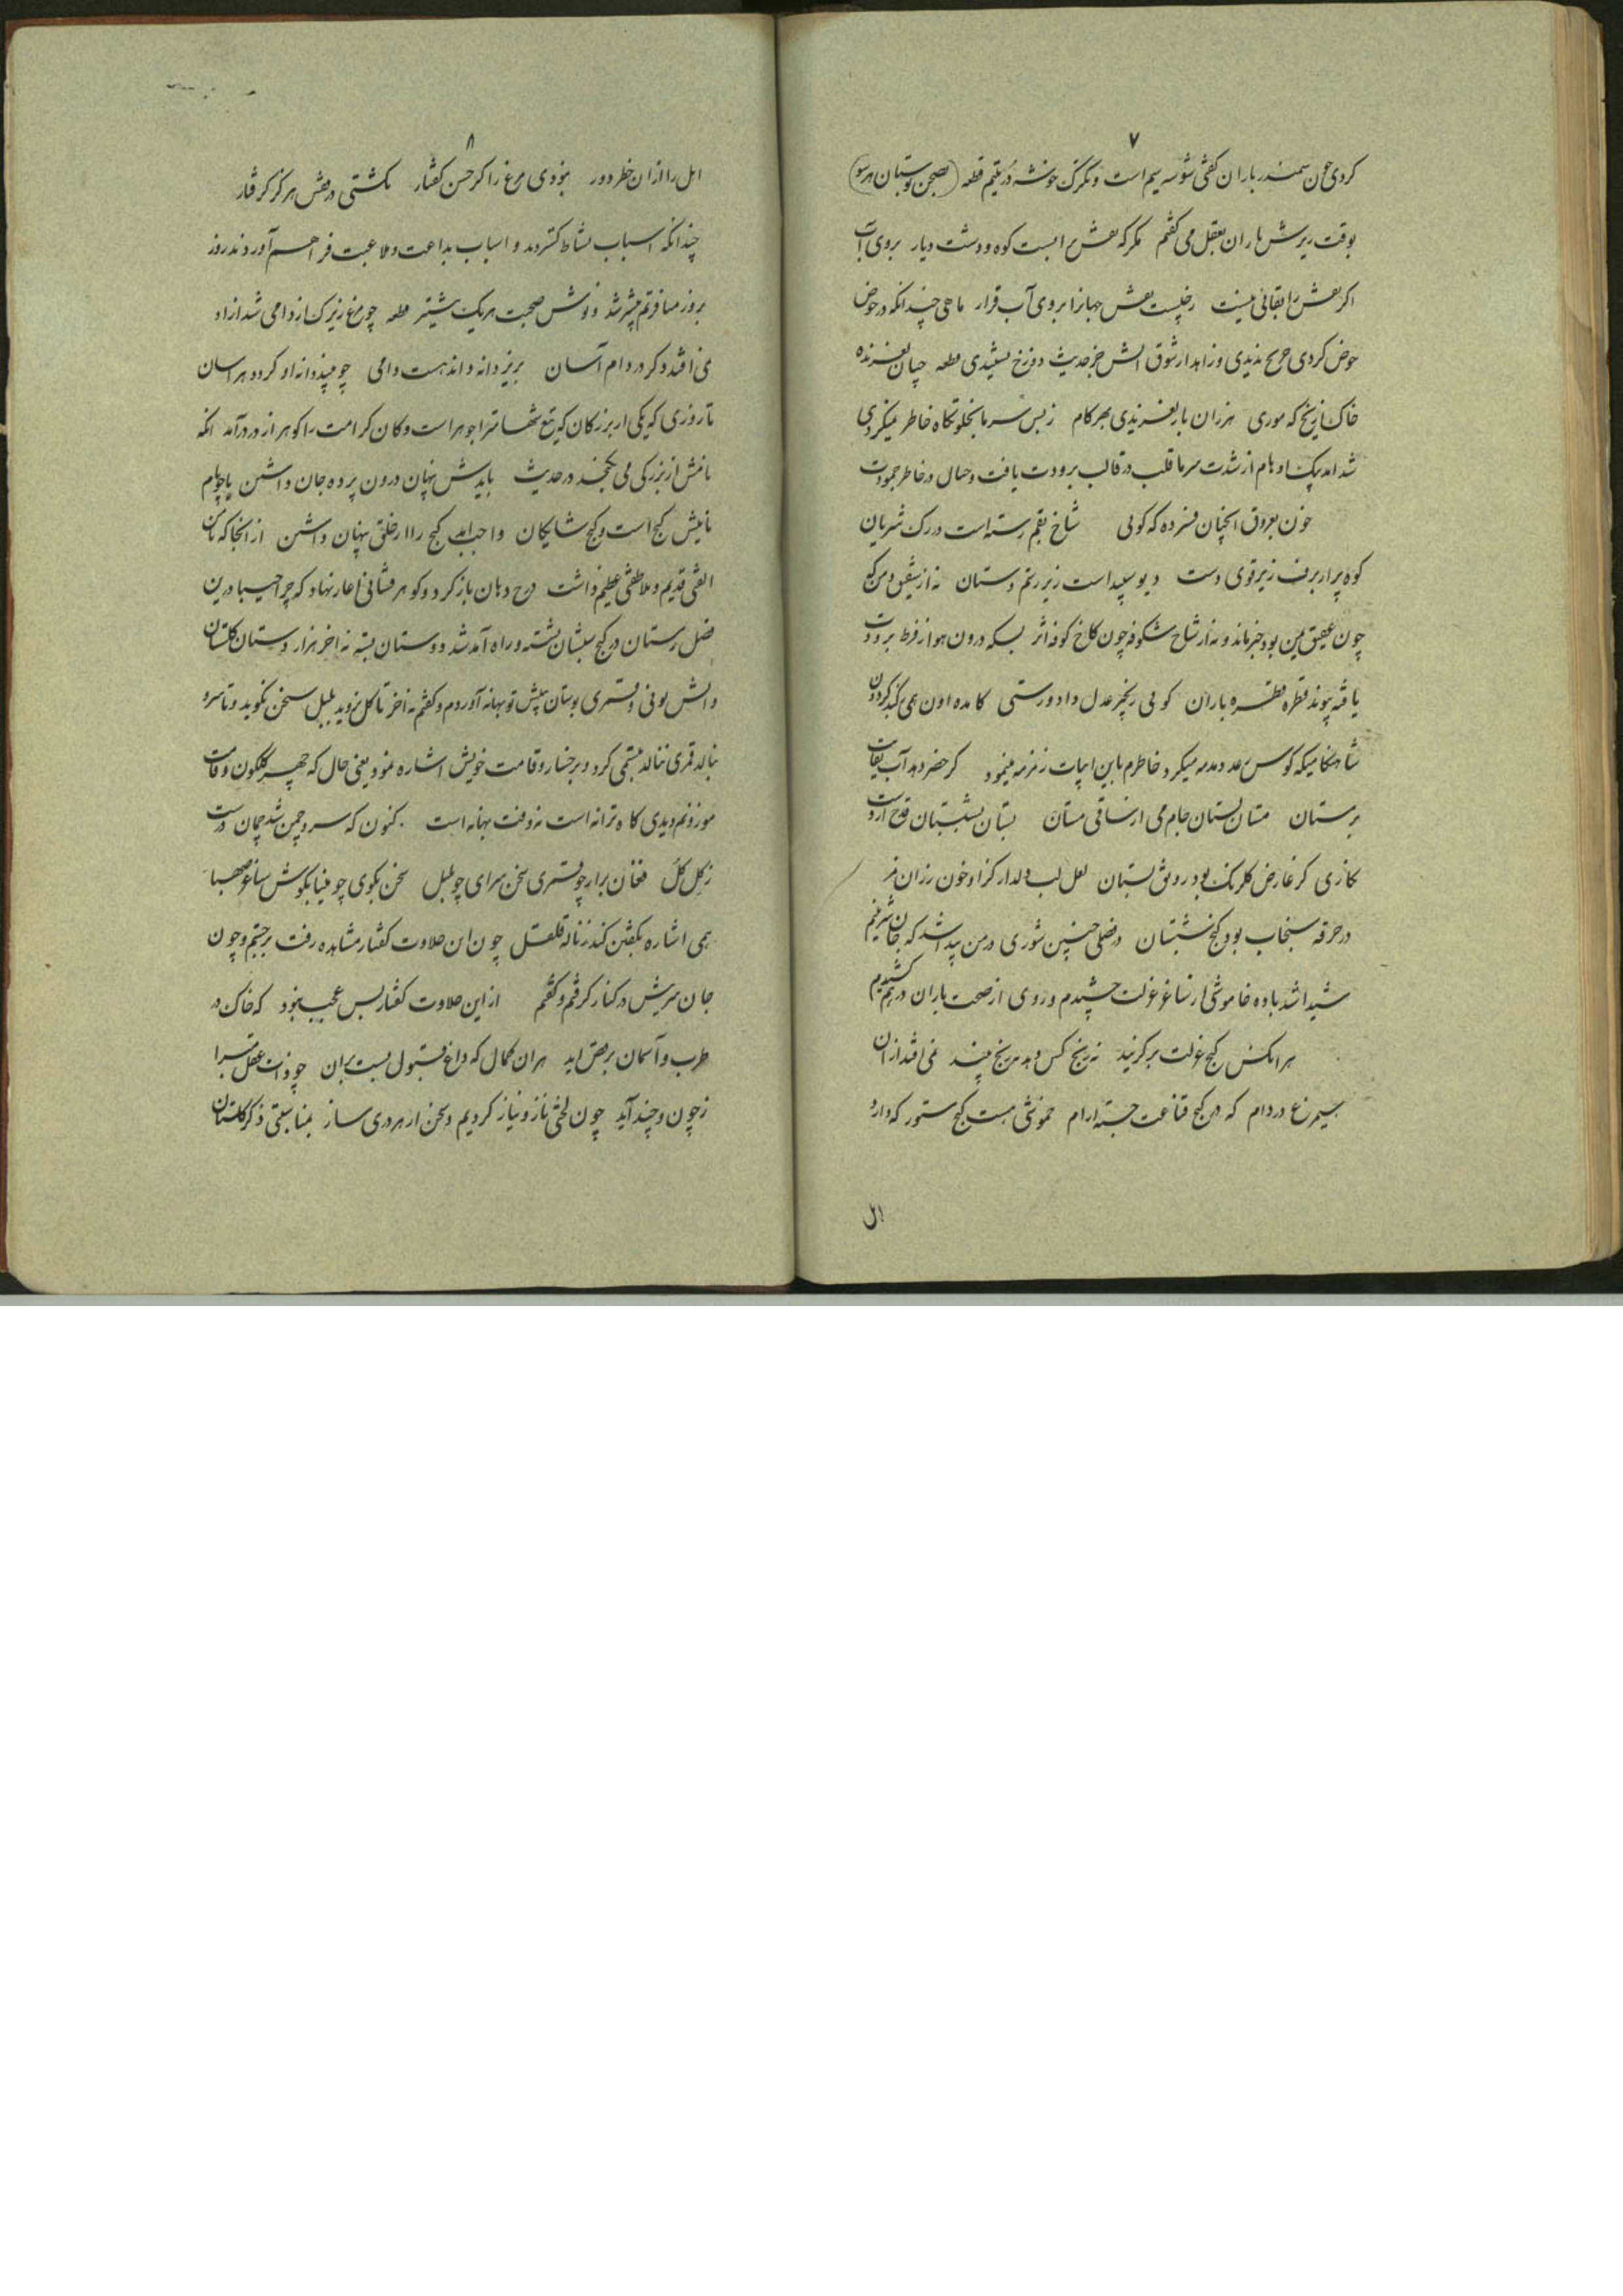 ۷
کردی چون سمندر باران کفتی شوسه سیم است و تکرک خوشه در یتیم قطعه (صحن بوستان هر سو)
بوقت ریزش باران بعقل می کفتم مکر که نقش برابست کوه و دشت و دیار بروی آب
اکر نقش را بقائی نیست ز چیست نقش جهانرا بروی آب قرار ماهی چندانکه در حوض
خوض کردی جز یخ ندیدی و زاهد از شوق آتش جز حدیث دوزخ نشنیدی قطعه چنان لغزنده
خاک از یخ که موری هزاران بار لغزیدی بهر کام ز بس سرما بخلوتکاه خاطر میکردی
شد امد پیک اوهام از شدت سرما قلب در قالب برودت یافت و خیال در خاطر جمودت
خون بعروق انچنان فسرده که کوئی شاخ بقم رسته است در رک شریان
کوه پر از برف زیر قوی دست دیو سپید است زیر رستم دستان نه از شقیق دمن که
چون عقیق یمن بود خبر ماند و نه از شاخ شکوفه چون کاخ کوفه اثر بسکه درون هوا از فرط برودت
یافته پیوند قطره قطره باران کوئی زنجیر عدل داد ورستی کامده اون همی ز کنبد کردون
شامکاهیکه کوس رعد دمدمه میکرد خاطرم باین ابیات زمزمه مینمود کر خضر دهد آب بقات
بزمستان مستان بستان جام می از ساقی مستان بستان بشبستان قدح از دست
نکاری کز عارض کلرنک بود رونق بستان لعل لب دلدار کز او خون رزان مز
در خرقه سنجاب بود کنج شبستان در فصلی چنین شوری در من پیدا شد که جان شیرینم
شیدا شد باده خاموشی از ساغر عزلت چشیدم و روی از صحبت یاران درهم کشیدم
هر انکس کنج عزلت برکزیند نه رنج کس دهد نه رنج بیند نمی افتد از آن
سیمرغ در دام که در کنج قناعت جسته ارام خموشی هست کنج ستور که دارد
اهل
۸
اهل را از ان خطر دور نبودی مرغ را کر حسن کفتار نکشتی در قفس هرکز کرفتار
چندانکه اسباب نشاط کستردند و اسباب مداعبت و ملاعبت فراهم آوردند روز
بروز منافرتم بیشتر شد و نوش صحبت هر یک نیشتر قطعه چو مرغ زیرک از دامی شد ازاد
نمی افتد دکر در دام آسان بریزد دانه داند هست دامی چو بیند دانه او کردد هراسان
تا روزی که یکی از بزرکان که تیغ شهامترا جوهر است و کان کرامت را کوهر از در درآمد انکه
نامش از بزرکی می نکنجد در حدیث بایدش پنهان درون پرده جان داشتن یا چو نام
نامیش کنج است و کنج شایکان واجب اید کنج را از خلق پنهان داشتن از انجا که با من
الفتی قدیم و ملاطفتی عظیم داشت درج دهان باز کرد و کوهر فشانی اغاز نهاد که چرا حبیبا درین
فصل زمستان در کنج شبستان نشسته و راه آمد شد دوستان بسته نه اخر هزار دستان کلستان
دانش بودی و قمری بوستان بینش تو بهانه آوردم و کفتم نه اخر تا کل نروید بلبل سخن نکوید و تا سرو
نبالد قمری ننالد تبسمی کرد و بر رخسار و قامت خویش اشاره نمود یعنی حال که چهره کلکون و قامت
موزونم دیدی کاه ترانه است نه وقت بهانه است کنون که سرو چمن شد چمان درست
ز کل کل فغان برار چو قمری سخن سرای چو بلبل سخن بکوی چو مینا بکوش ساغر صهبا
همی اشاره بکفتن کند ز ناله قلقل چون این حلاوت کفتار مشاهده رفت برجستم و چون
جان سریش در کنار کرفتم و کفتم از این حلاوت کفتار بس عجب نبود که خاک در
طرب و آسمان برقص اید هران کمال که داغ قبول نیست بران چو ذات عقل مبرا
ز چون و چند آید چون لختی ناز و نیاز کردیم و سخن از هر دری ساز بمناسبتی ذکر کلستان